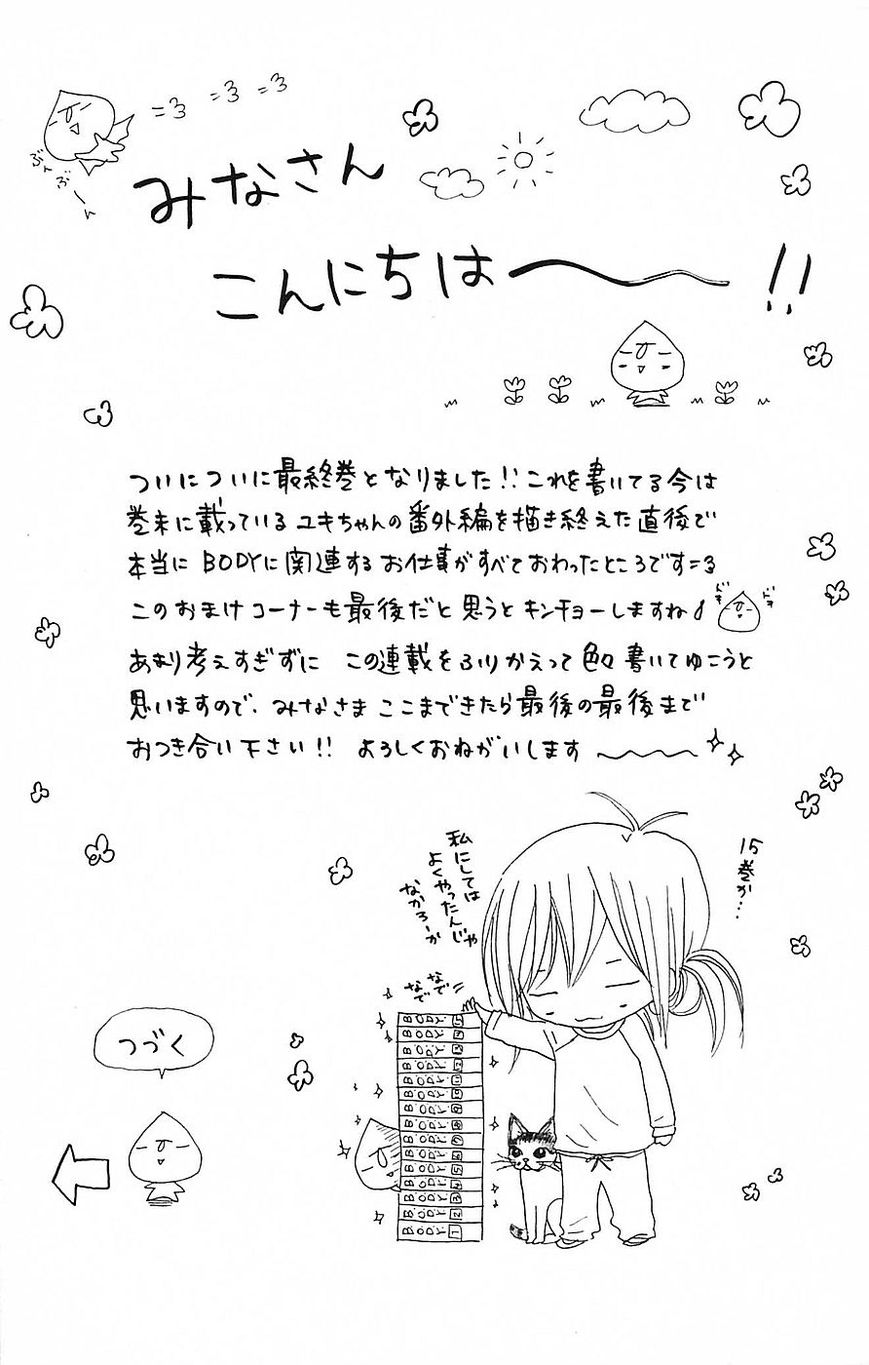 みなさん
こんにちは〜!!
ぶーん
ぶーん
ついについに最終巻となりました!!これを書いてる今は
巻末に載っているユキちゃんの番外編を描き終えた直後で
本当にBODYに関連するお仕事がすべておわったところです=3
このおまけコーナーも最後だと思うとキンチョーしますね♪
ドキ
ドキ
あまり考えすぎずに この連載をふりかえって色々書いてゆこうと
思いますので、みなさま ここまできたら最後の最後まで
おつき合い下さい!! よろしくおねがいします〜
15巻か…
私にしては
よくやったんじゃ
なかろーか
なでなで
BODY 15
BODY 14
BODY 13
BODY 12
BODY 11
BODY 10
BODY 9
BODY 8
BODY 7
BODY 6
BODY 5
BODY 4
BODY 3
BODY 2
BODY 1
つづく